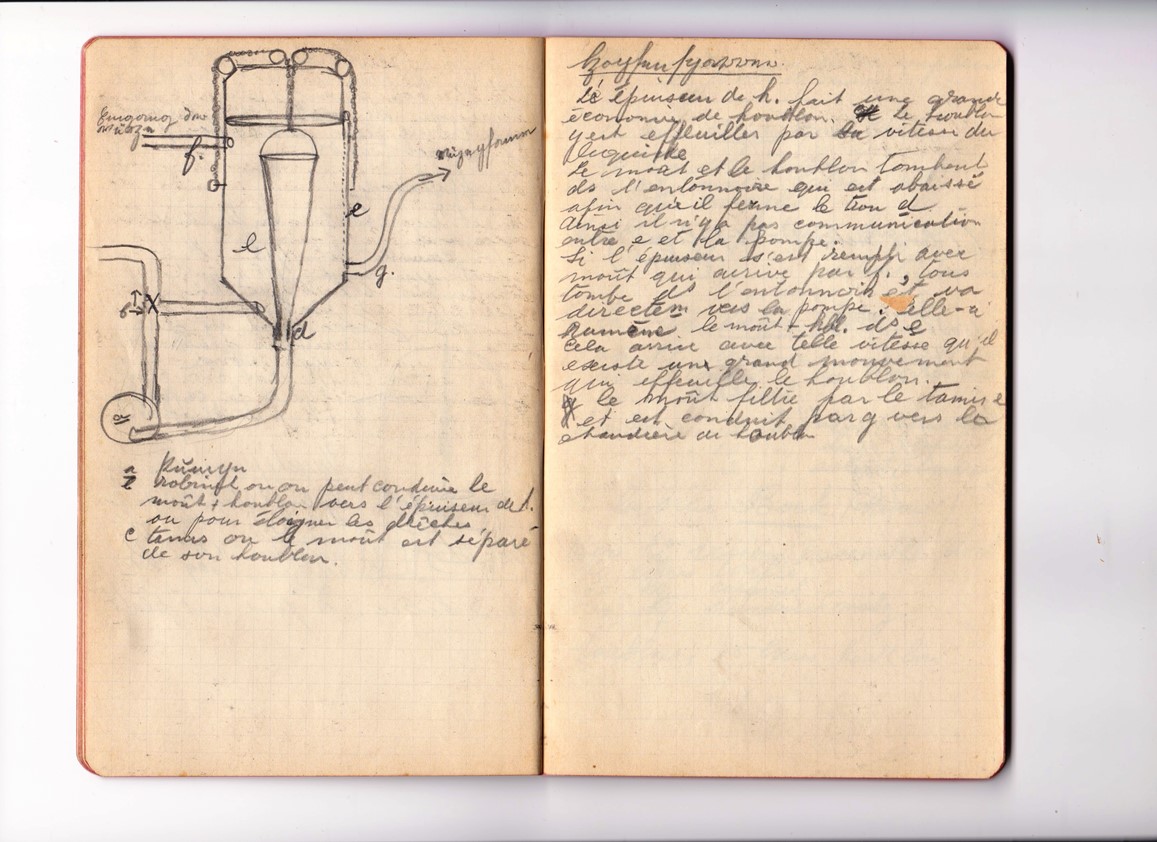 Eingang der
Würze
f.
e
l
g.
b
d
a
a Pumpe
b robinet ou on peut conduire le
moût + houblon vers l'épuiseur de h.
ou pour éloigner les drêches
c tamis ou le moût est séparé
de son houblon.
L'épuiseur de h. fait une grande
économie de houblon. Le houblon
y est effeuiller par la vitesse du
liquide
Le moût et le houblon tombent
ds l'entonnoire qui est abaissé
afin qu'il ferme le trou d
Ainsi il n'y a pas communication
entre e et la pompe.
Si l'épuiseur s'est rempli avec
moût qui arrive par f, tous
tombe ds l'entonnoir et va
directem vers la pompe. elle-ci
ramène le moût + hbl. ds e
cela arrive avec telle vitesse qu'il
existe un grand mouvement
qui effeuille le houblon.
le moût filtre par le tamis e
et est conduit par g vers la
chaudière de houbln